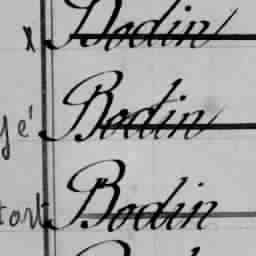 x Bodin
gé Bodin
tort Bodin